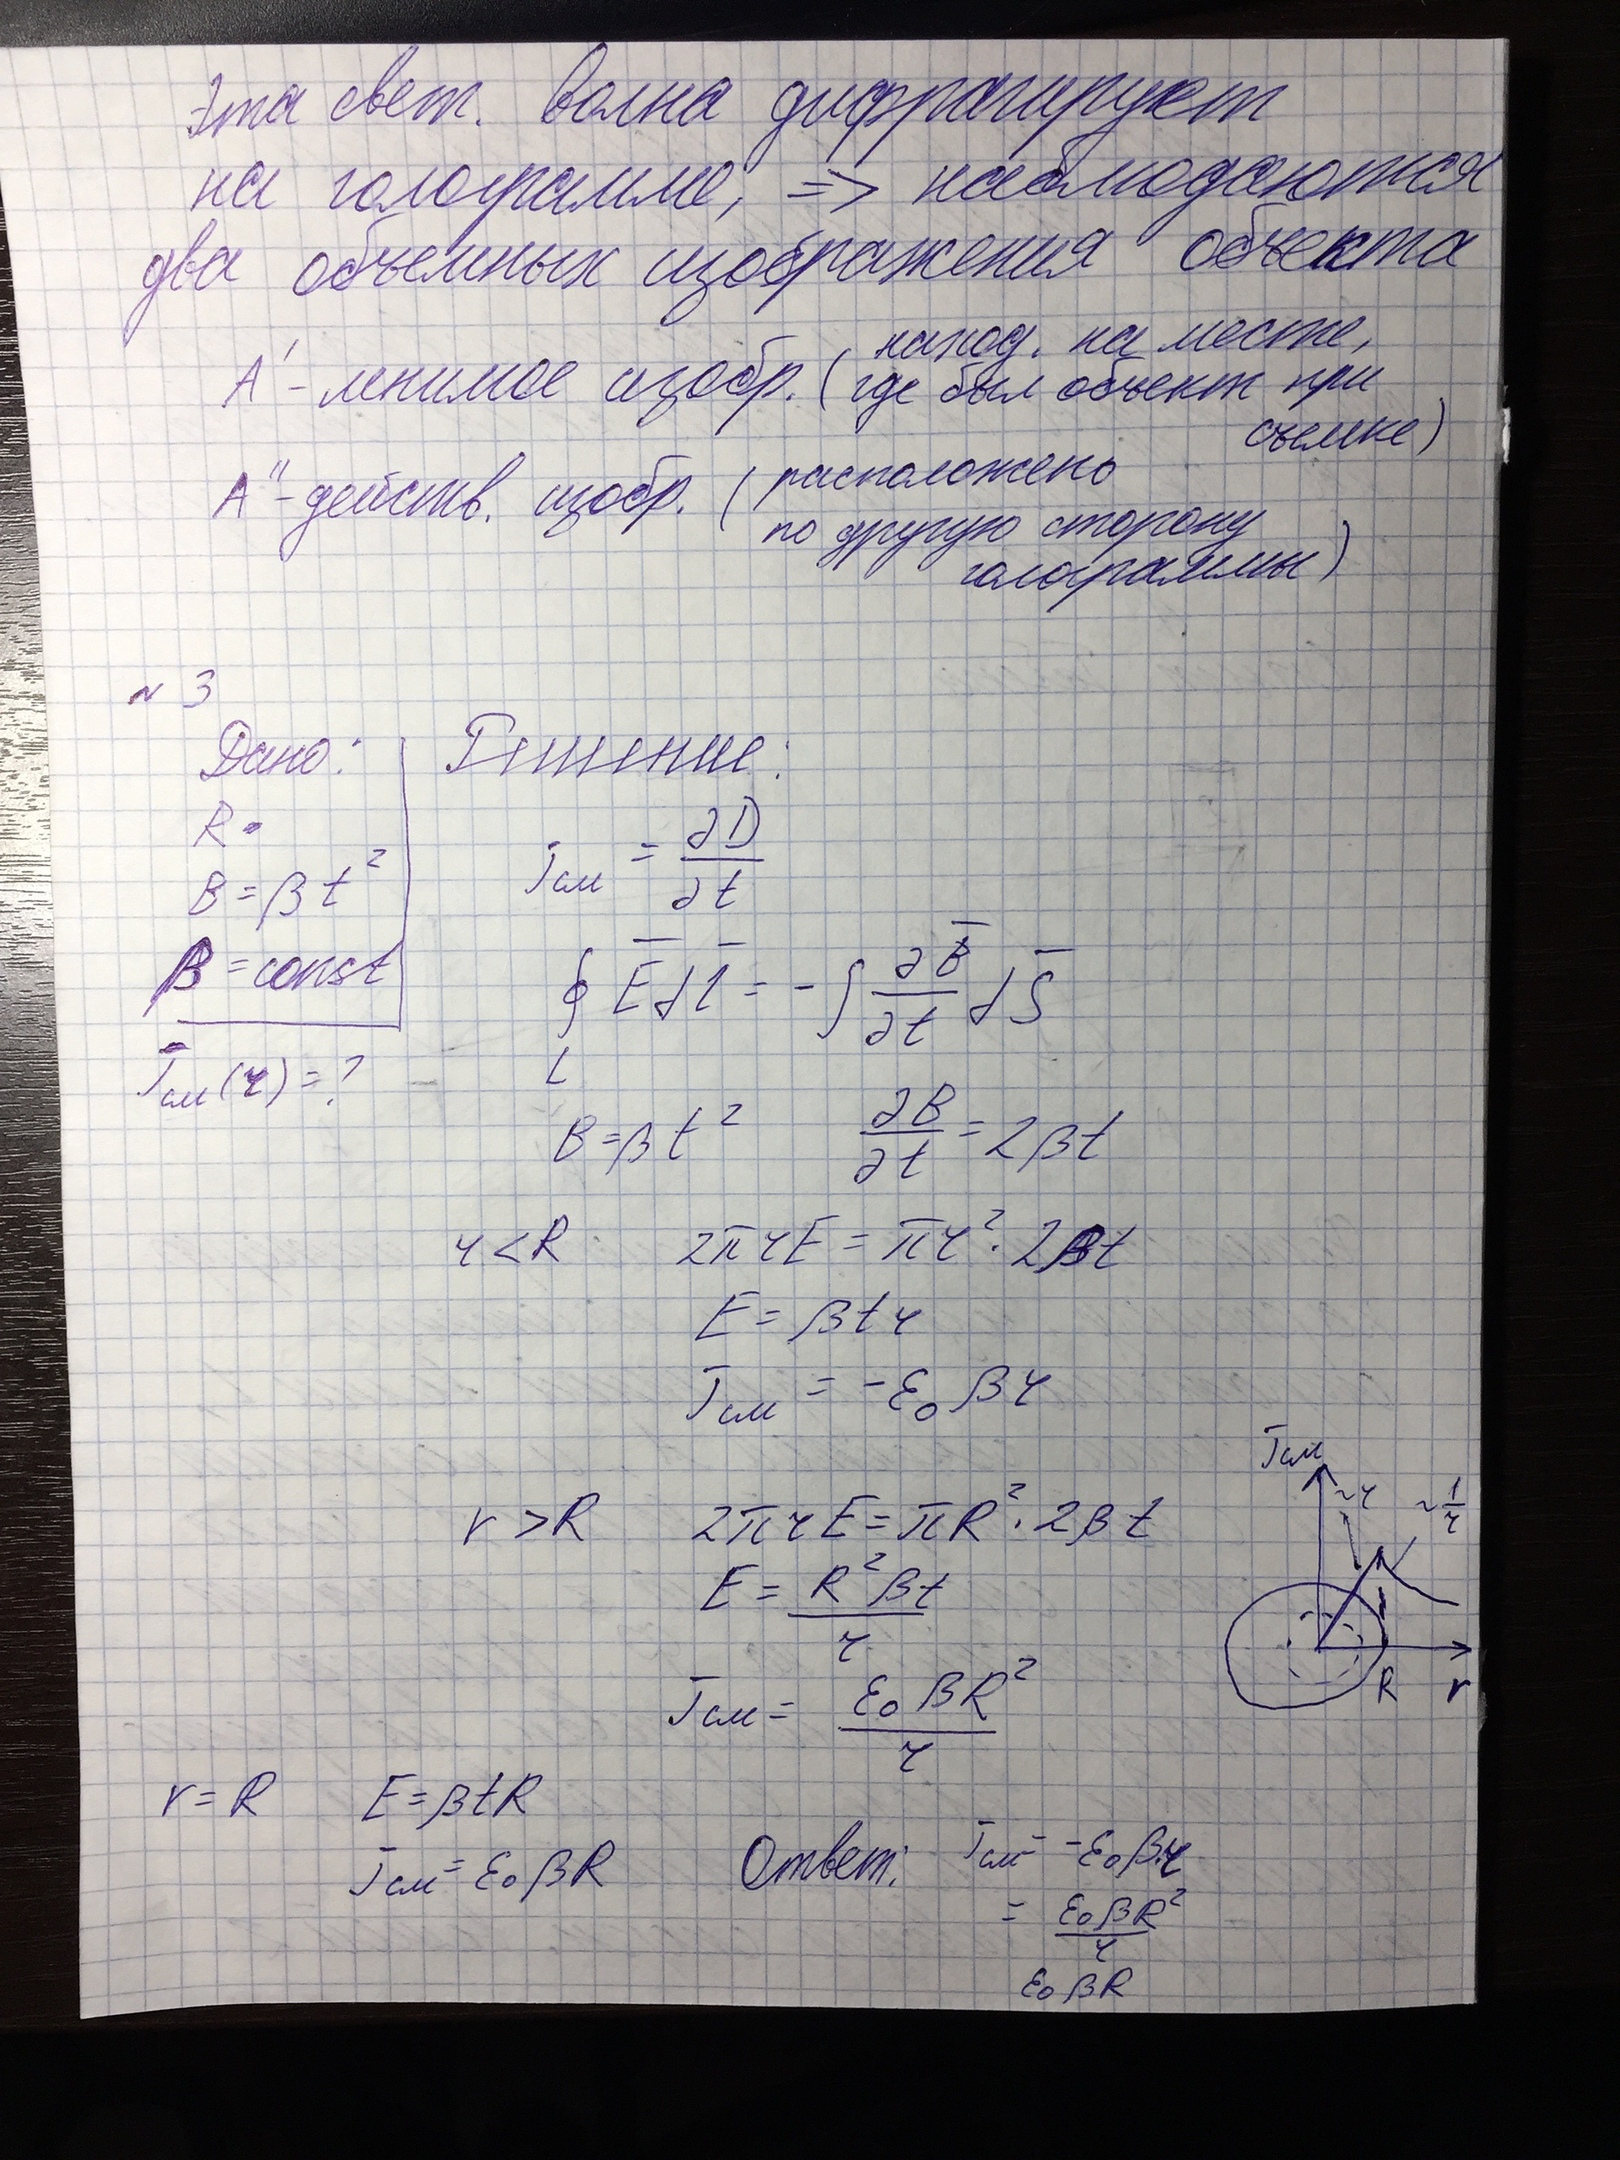 Эта свет. волна дифрагирует
на голограмме, => наблюдаются
два объемных изображения объекта
A' - мнимое изобр. (наход. на месте,
где был объект при
съемке)
A" - действ. изобр. (расположено
по другую сторону
голограммы)
№ 3
Дано: Решение:
R
B = βt²
β = const
jсм(r) = ?
jсм = ∂D/∂t
∮ E̅ dl̅ = - ∫ ∂B̅/∂t dS̅
L
B = βt² ∂B/∂t = 2βt
r < R 2πrE = πr² · 2βt
E = βtr
jсм = -ε₀βr
r > R 2πrE = πR² · 2βt
E = R²βt/r
jсм = ε₀βR²/r
jсм
~r ~1/r
R r
r = R E = βtR
jсм = ε₀βR
Ответ: jсм = -ε₀βr
= ε₀βR²/r
ε₀βR